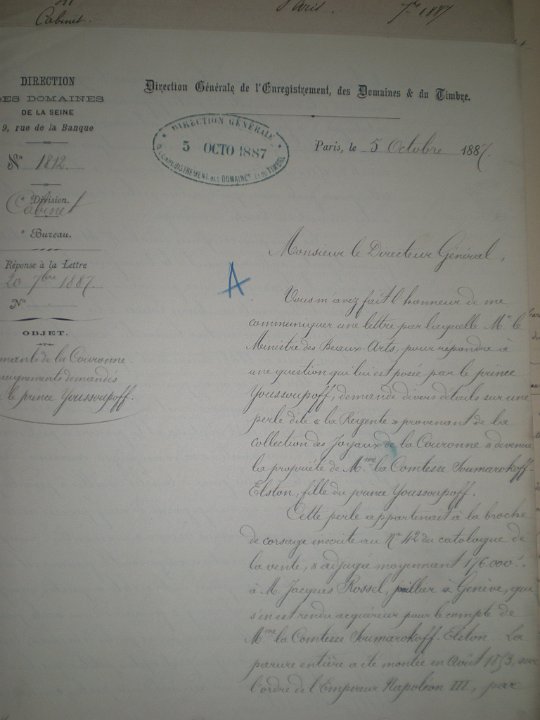 Cabinet.
Paris
7bre 1887
DIRECTION
DES DOMAINES
DE LA SEINE
9, rue de la Banque
N° 1812.
Division.
Cabinet
Bureau.
Réponse à la Lettre
20 7bre 1887
N°
OBJET.
de la Couronne
demandés
le prince Youssoupoff.
Direction Générale de l'Enregistrement, des Domaines & du Timbre.
DIRECTION GÉNÉRALE
5 OCTO 1887
DE L'ENREGISTREMENT DES DOMAINES ET DU TIMBRE
Paris, le 5 Octobre 1887
A
Monsieur le Directeur Général,
Vous m'avez fait l'honneur de me
communiquer une lettre par laquelle Mr le
Ministre des Beaux Arts, pour répondre à
une question qui lui est posée par le prince
Youssoupoff, demande divers détails sur une
perle dite « la Régente » provenant de la
collection des Joyaux de la Couronne & devenue
la propriété de Mme la Comtesse Soumarokoff-
Elston, fille du prince Youssoupoff.
Cette perle appartenait à la broche
de corsage inscrite au N° 42 du catalogue de
la vente, & adjugé moyennant 176.000f.
à M. Jacques Rossel, joaillier à Genève, qui
s'en est rendu acquéreur pour le compte de
Mme la Comtesse Soumarokoff Elston. La
parure entière a été montée en Août 1853, sur
l'ordre de l'Empereur Napoléon III, par